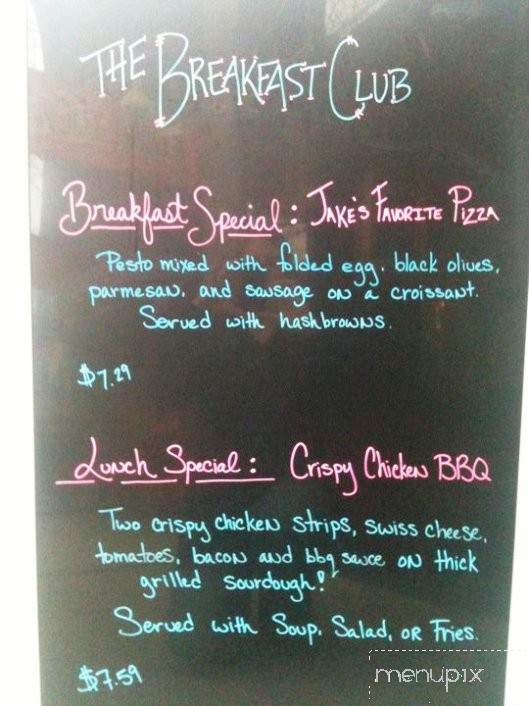 THE BREAKFAST CLUB
Breakfast Special: JAKE'S FAVORITE PIZZA
Pesto mixed with folded egg, black olives,
parmesan, and sausage on a croissant.
Served with hashbrowns.
$7.29
Lunch Special: Crispy Chicken BBQ
Two crispy chicken strips, swiss cheese,
tomatoes, bacon and bbq sauce on thick
grilled sourdough!
Served with Soup, Salad, or Fries.
$7.59
menupix